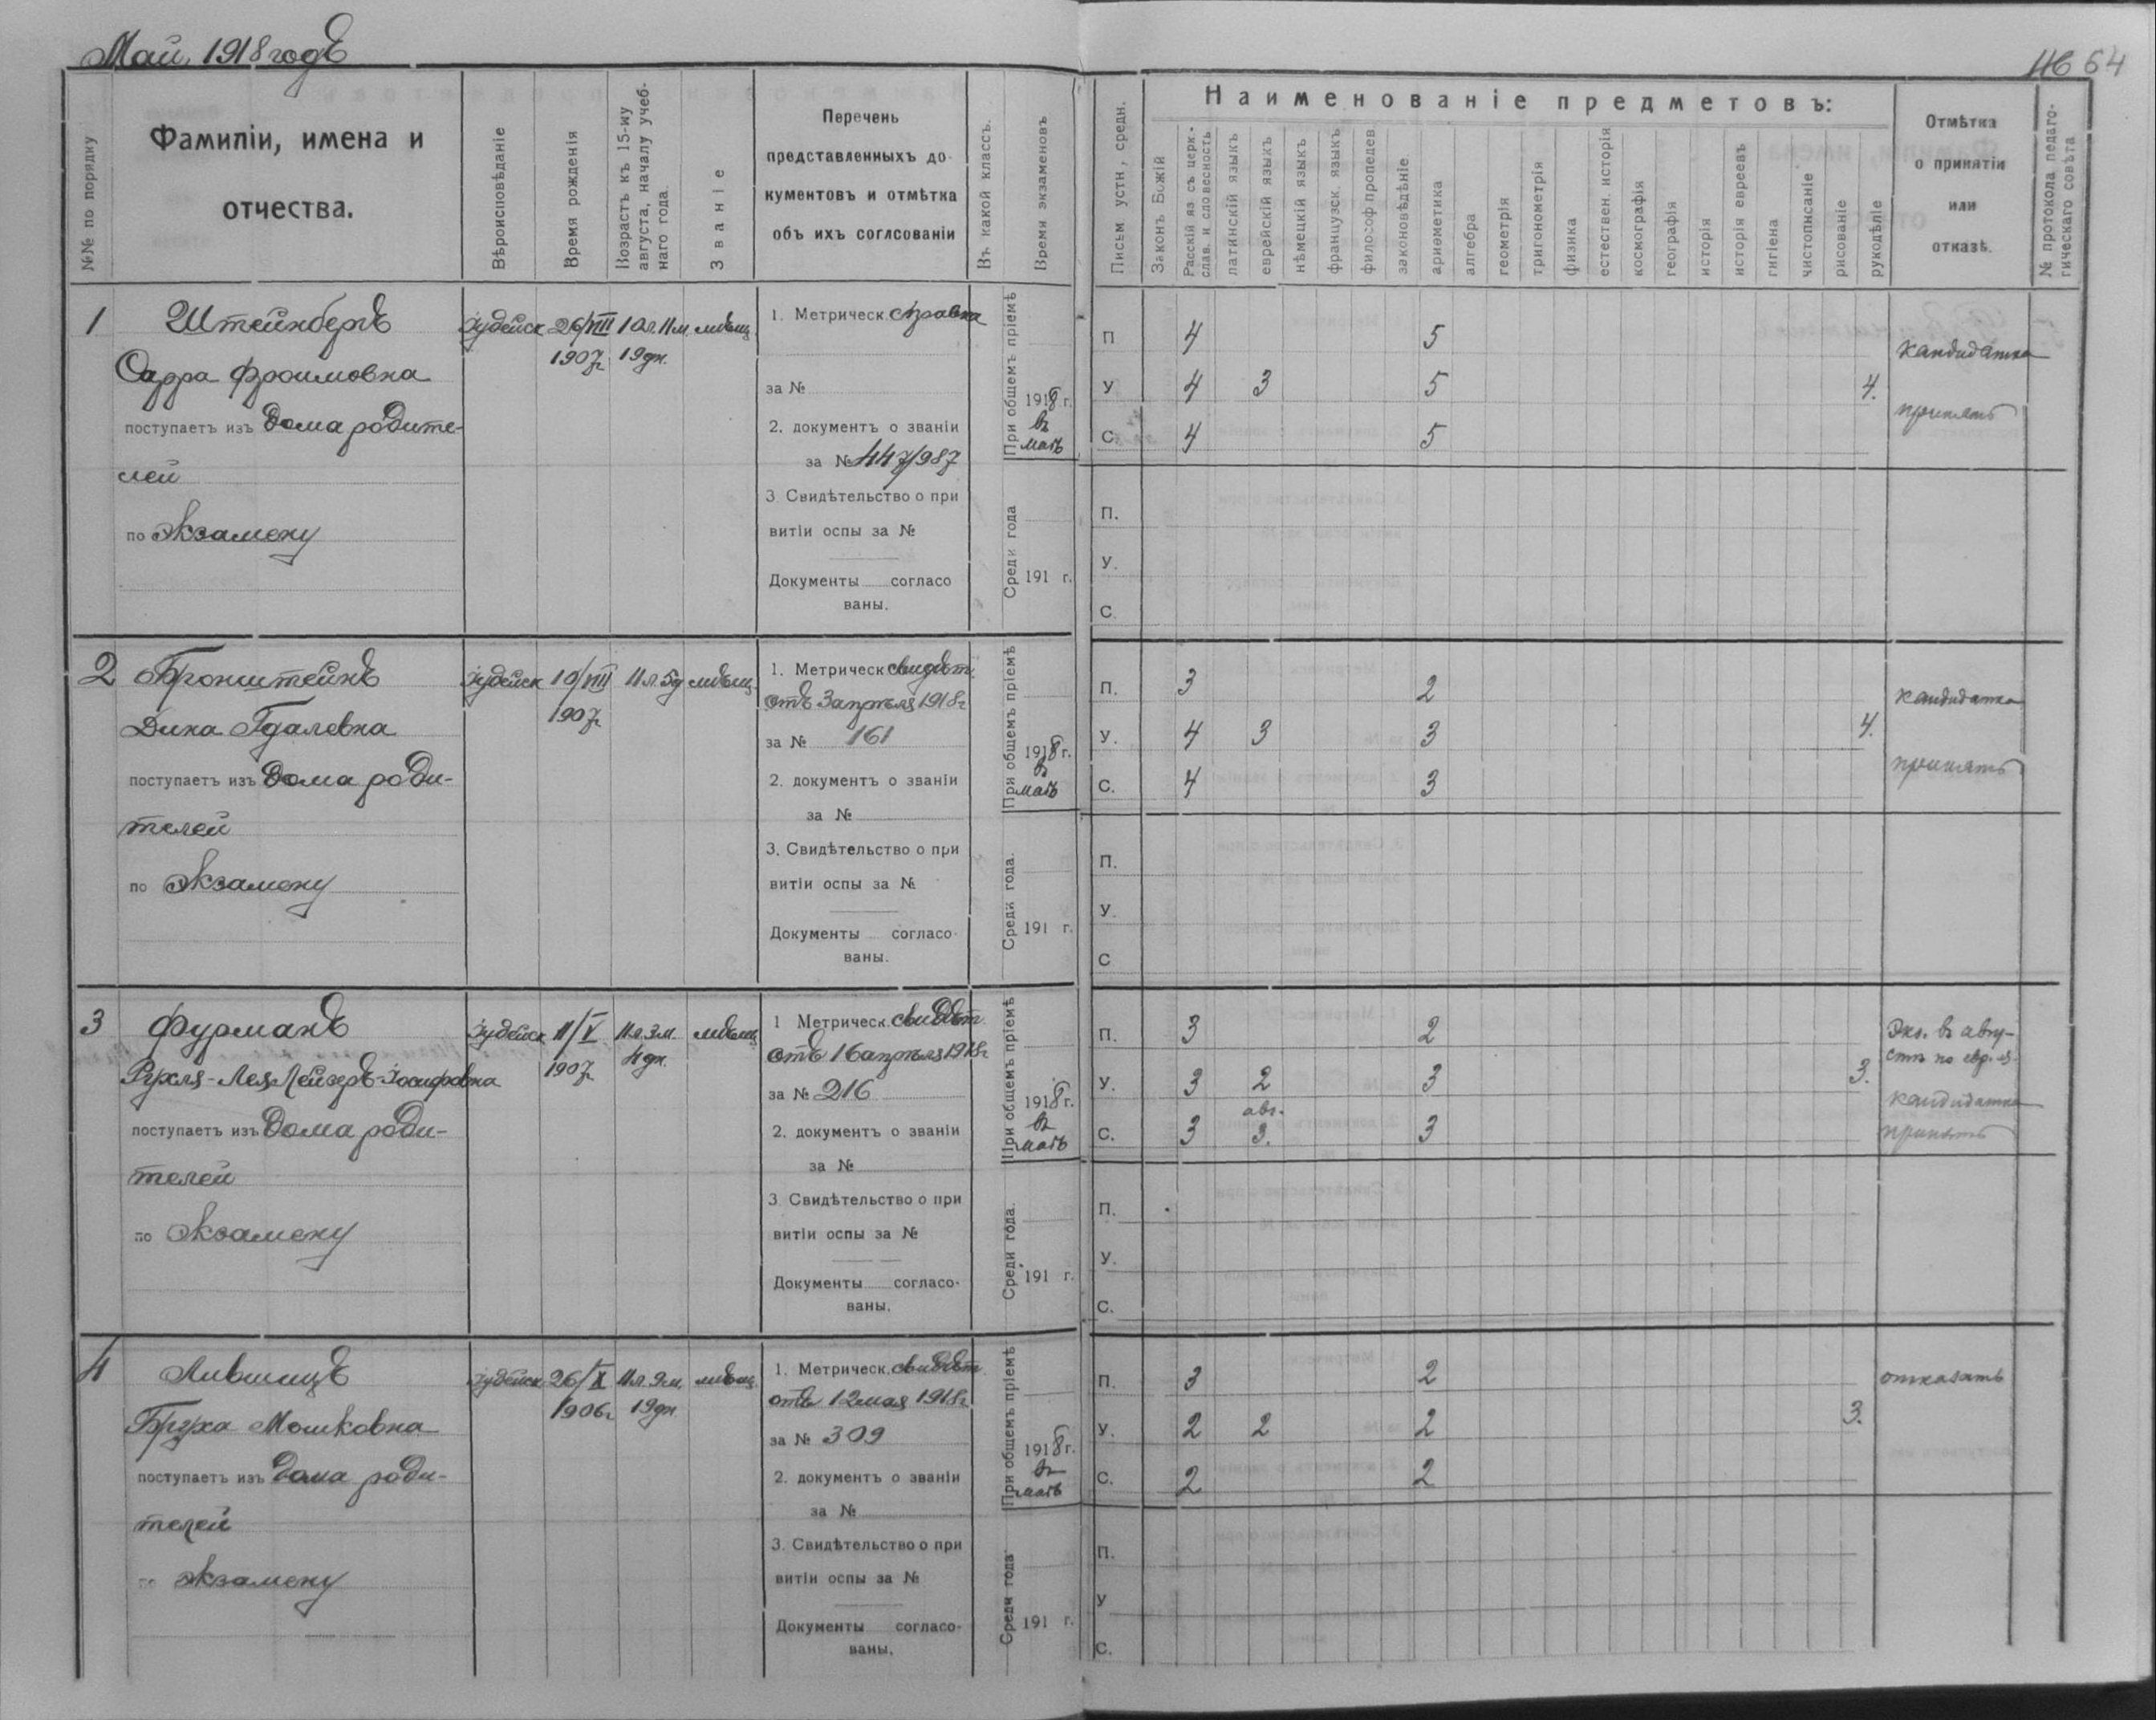 Май, 1918 годъ
46 64
№№ по порядку
Фамиліи, имена и
отчества.
Вѣроисповѣданіе
Время рожденія
Возрастъ къ 15-му
августа, началу учеб-
наго года.
Званіе
Перечень
представленныхъ до-
кументовъ и отмѣтка
объ ихъ соглсованіи
Въ какой классъ.
Время экзаменовъ
Письм устн., средн.
Наименованіе предметовъ:
Законъ Божій
Расскій яз съ церк.-
слав. и словесность
латинскій языкъ
еврейскій языкъ
нѣмецкій языкъ
французск. языкъ
философ пропедев
законовѣдѣніе
ариѳметика
алгебра
геометрія
тригонометрія
физика
естествен. исторія
космографія
географія
исторія
исторія евреевъ
гигіена
чистописаніе
рисованіе
рукодѣліе
Отмѣтка
о принятіи
или
отказѣ.
№ протокола педаго-
гическаго совѣта
1 Штейнбергъ
Сарра Фроимовна
поступаетъ изъ дома родите-
лей
по экзамену
іудейск 26/VIII 10 л. 11 м. мѣщ.
1907 г. 19 дн.
1. Метрическ. справка
за №
2. документъ о званіи
за № 447/987
3. Свидѣтельство о при
витіи оспы за №
Документы согласо
ваны.
При общемъ пріемѣ
1918 г.
въ
маѣ
Среди года
191 г.
П 4 5
У 4 3 5 4.
С. 4 5
кандидатка
принять
П.
У.
С.
2 Бронштейнъ
Дина Гдалевна
поступаетъ изъ дома роди-
телей
по экзамену
іудейск 10/VIII 11 л. 5 д мѣщ.
1907 г.
1. Метрическ свидѣт.
отъ 3 апрѣля 1918 г.
за № 161
2. документъ о званіи
за №
3. Свидѣтельство о при
витіи оспы за №
Документы согласо-
ваны.
При общемъ пріемѣ
1918 г.
въ
маѣ
Среди года.
191 г.
П. 3 2
У. 4 3 3 4.
С. 4 3
кандидатка
принять
П.
У.
С
3 Фурманъ
Рухля-Лея Лейзеръ-Іосифовна
поступаетъ изъ дома роди-
телей
по экзамену
іудейск 11/V 11 л. 3 м. мѣщ
1907 г. 4 дн.
1 Метрическ. свидѣт.
отъ 16 апрѣля 1918 г.
за № 216
2. документъ о званіи
за №
3 Свидѣтельство о при
витіи оспы за №
Документы согласо-
ваны.
При общемъ пріемѣ
1918 г.
въ
маѣ
Среди года.
191 г.
П. 3 2
У. 3 2 3 3.
авг.
С. 3 3. 3
Экз. въ авгу-
стѣ по евр. яз.
кандидатка
принять
П.
У.
С.
4 Лившицъ
Бруха Мошковна
поступаетъ изъ дома роди-
телей
по экзамену
іудейск 26/X 11 л 9 м. мѣщ.
1906 г. 19 дн
1. Метрическ. свидѣт.
отъ 12 мая 1918 г.
за № 309
2. документъ о званіи
за №
3. Свидѣтельство о при
витіи оспы за №
Документы согласо-
ваны.
При общемъ пріемѣ
1918 г.
въ
маѣ
Среди года
191 г.
П. 3 2
У. 2 2 2 3.
С. 2 2
отказать
П.
У
С.